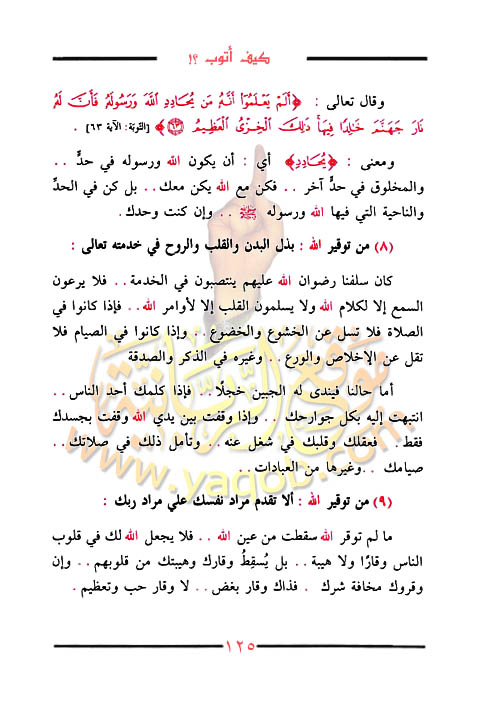 كيف أتوب ؟!
وقال تعالى : ﴿أَلَمْ يَعْلَمُوٓا۟ أَنَّهُۥ مَن يُحَادِدِ ٱللَّهَ وَرَسُولَهُۥ فَأَنَّ لَهُۥ
نَارَ جَهَنَّمَ خَٰلِدًا فِيهَا ذَٰلِكَ ٱلْخِزْىُ ٱلْعَظِيمُ ٦٣﴾ [التوبة: الآية ٦٣] .
ومعنى : ﴿يُحَادِدِ﴾ أي : أن يكون الله ورسوله في حدٍّ . .
والمخلوق في حدٍّ آخر . . فكن مع الله يكن معك. . بل كن في الحدِّ
والناحية التي فيها الله ورسوله ﷺ . . وإن كنت وحدك.
(٨) من توقير الله : بذل البدن والقلب والروح في خدمته تعالى :
كان سلفنا رضوان الله عليهم ينتصبون في الخدمة. . فلا يرعون
السمع إلا لكلام الله ولا يسلمون القلب إلا لأوامر الله. . فإذا كانوا في
الصلاة فلا تسل عن الخشوع والخضوع. . وإذا كانوا في الصيام فلا
تقل عن الإخلاص والورع. . وغيره في الذكر والصدقة
أما حالنا فيندى له الجبين خجلًا. . فإذا كلمك أحد الناس. .
انتبهت إليه بكل جوارحك . . وإذا وقفت بين يدي الله وقفت بجسدك
فقط. . فعقلك وقلبك في شغل عنه. . وتأمل ذلك في صلاتك. .
صيامك . .وغيرها من العبادات. .
(٩) من توقير الله : ألا تقدم مراد نفسك علي مراد ربك :
ما لم توقر الله سقطت من عين الله . . فلا يجعل الله لك في قلوب
الناس وقارًا ولا هيبة. . بل يُسقِطُ وقارك وهيبتك من قلوبهم. . وإن
وقروك مخافة شرك . فذاك وقار بغض. . لا وقار حب وتعظيم.
١٢٥
www.yaqob.com